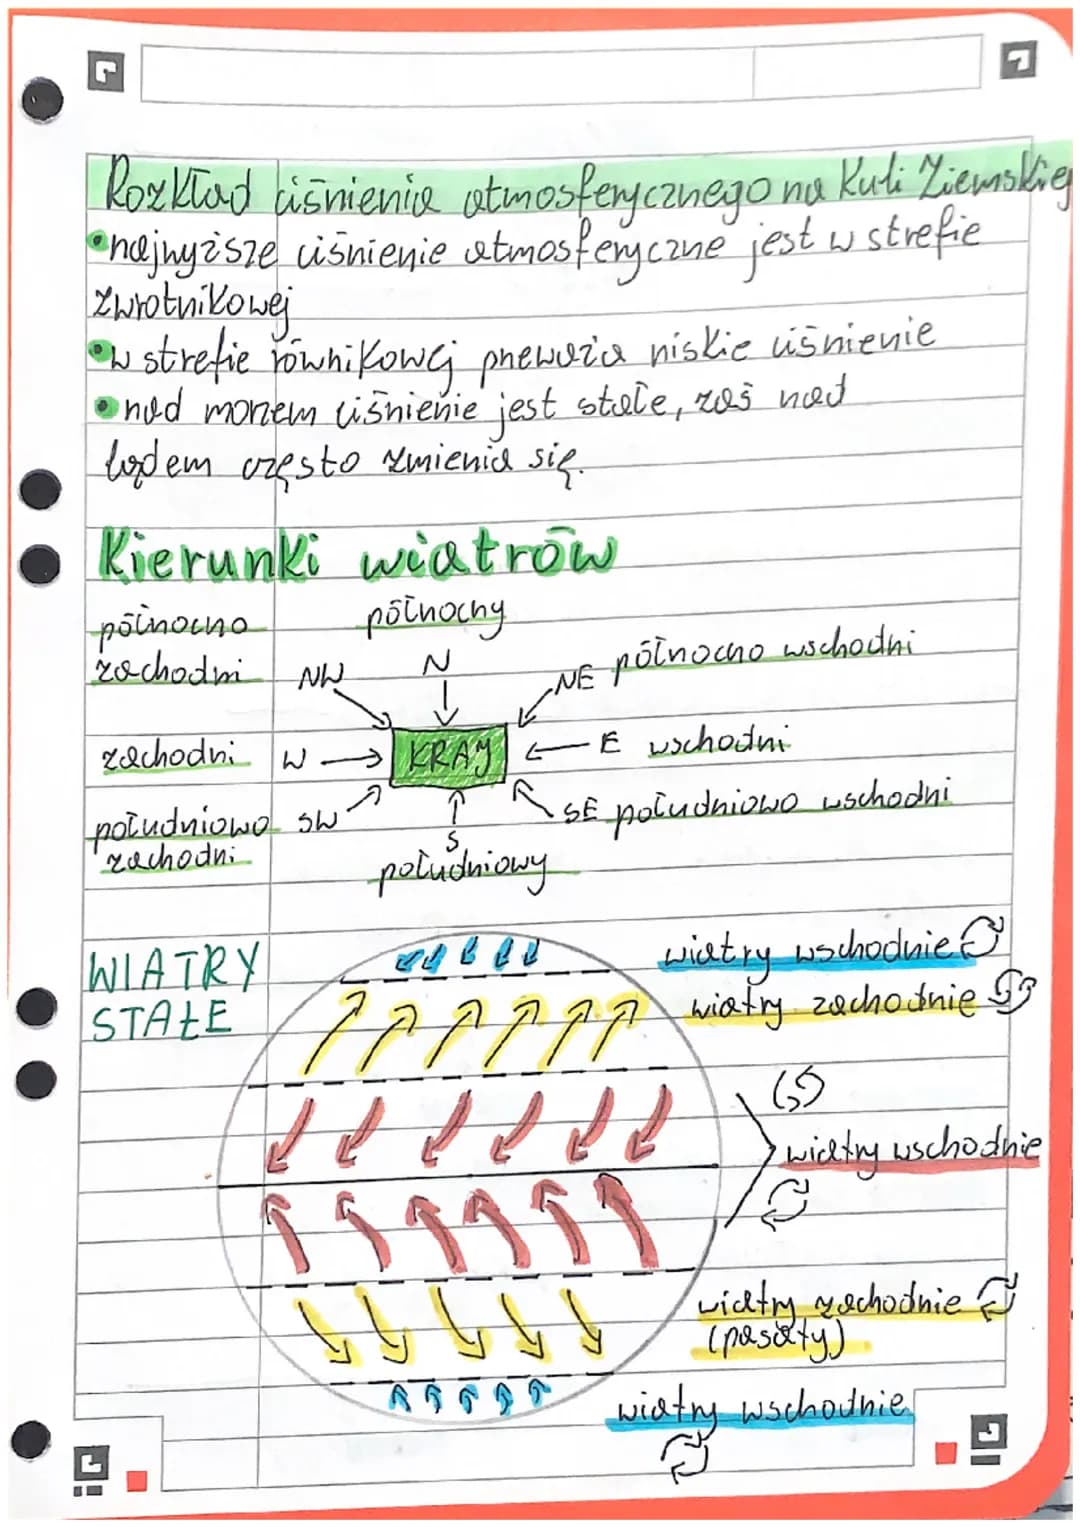 Rozkład ciśnienia atmosferycznego na Kuli Ziemskiej
•najwyższe ciśnienie atmosferyczne jest w strefie
zwrotnikowej
•w strefie równikowej przeważa niskie ciśnienie
•nad morzem ciśnienie jest stałe, zaś nad
lądem często zmienia się.
Kierunki wiatrów
północno
zachodni
północny
NW
N
NE północno wschodni
zachodni W
KRAJ
E wschodni
południowo
zachodni
SW
S
południowy
SE południowo wschodni
WIATRY
STAŁE
wiatry wschodnie
wiatry zachodnie
wiatry wschodnie
wiatry zachodnie
(pasaty)
wiatry wschodnie